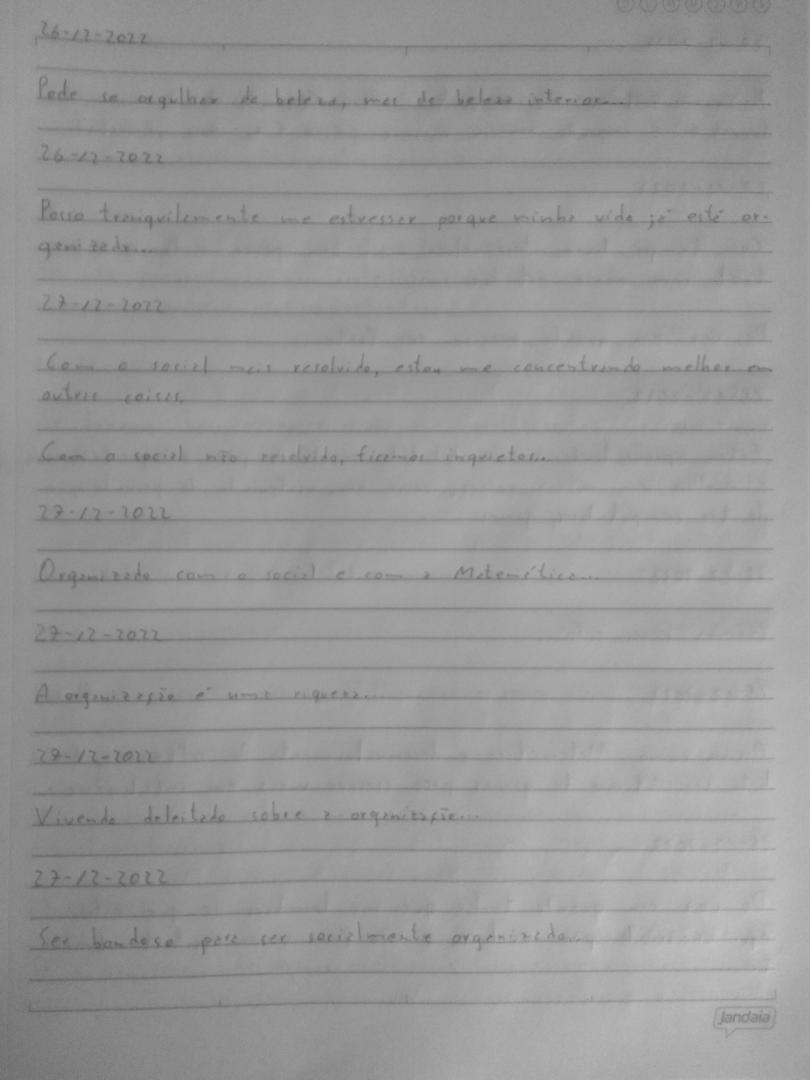 26-12-2022
Pode se orgulhar de beleza, mas de beleza interior...
26-12-2022
Posso tranquilamente me estressar porque minha vida já está or-
ganizada...
27-12-2022
Com o social mais resolvido, estou me concentrando melhor em
outras coisas.
Com o social não resolvido, ficamos inquietos...
27-12-2022
Organizado com o social e com a Matemática...
27-12-2022
A organização é uma riqueza...
27-12-2022
Vivendo deleitado sobre a organização...
27-12-2022
Ser bondoso para ser socialmente organizado...
Jandaia